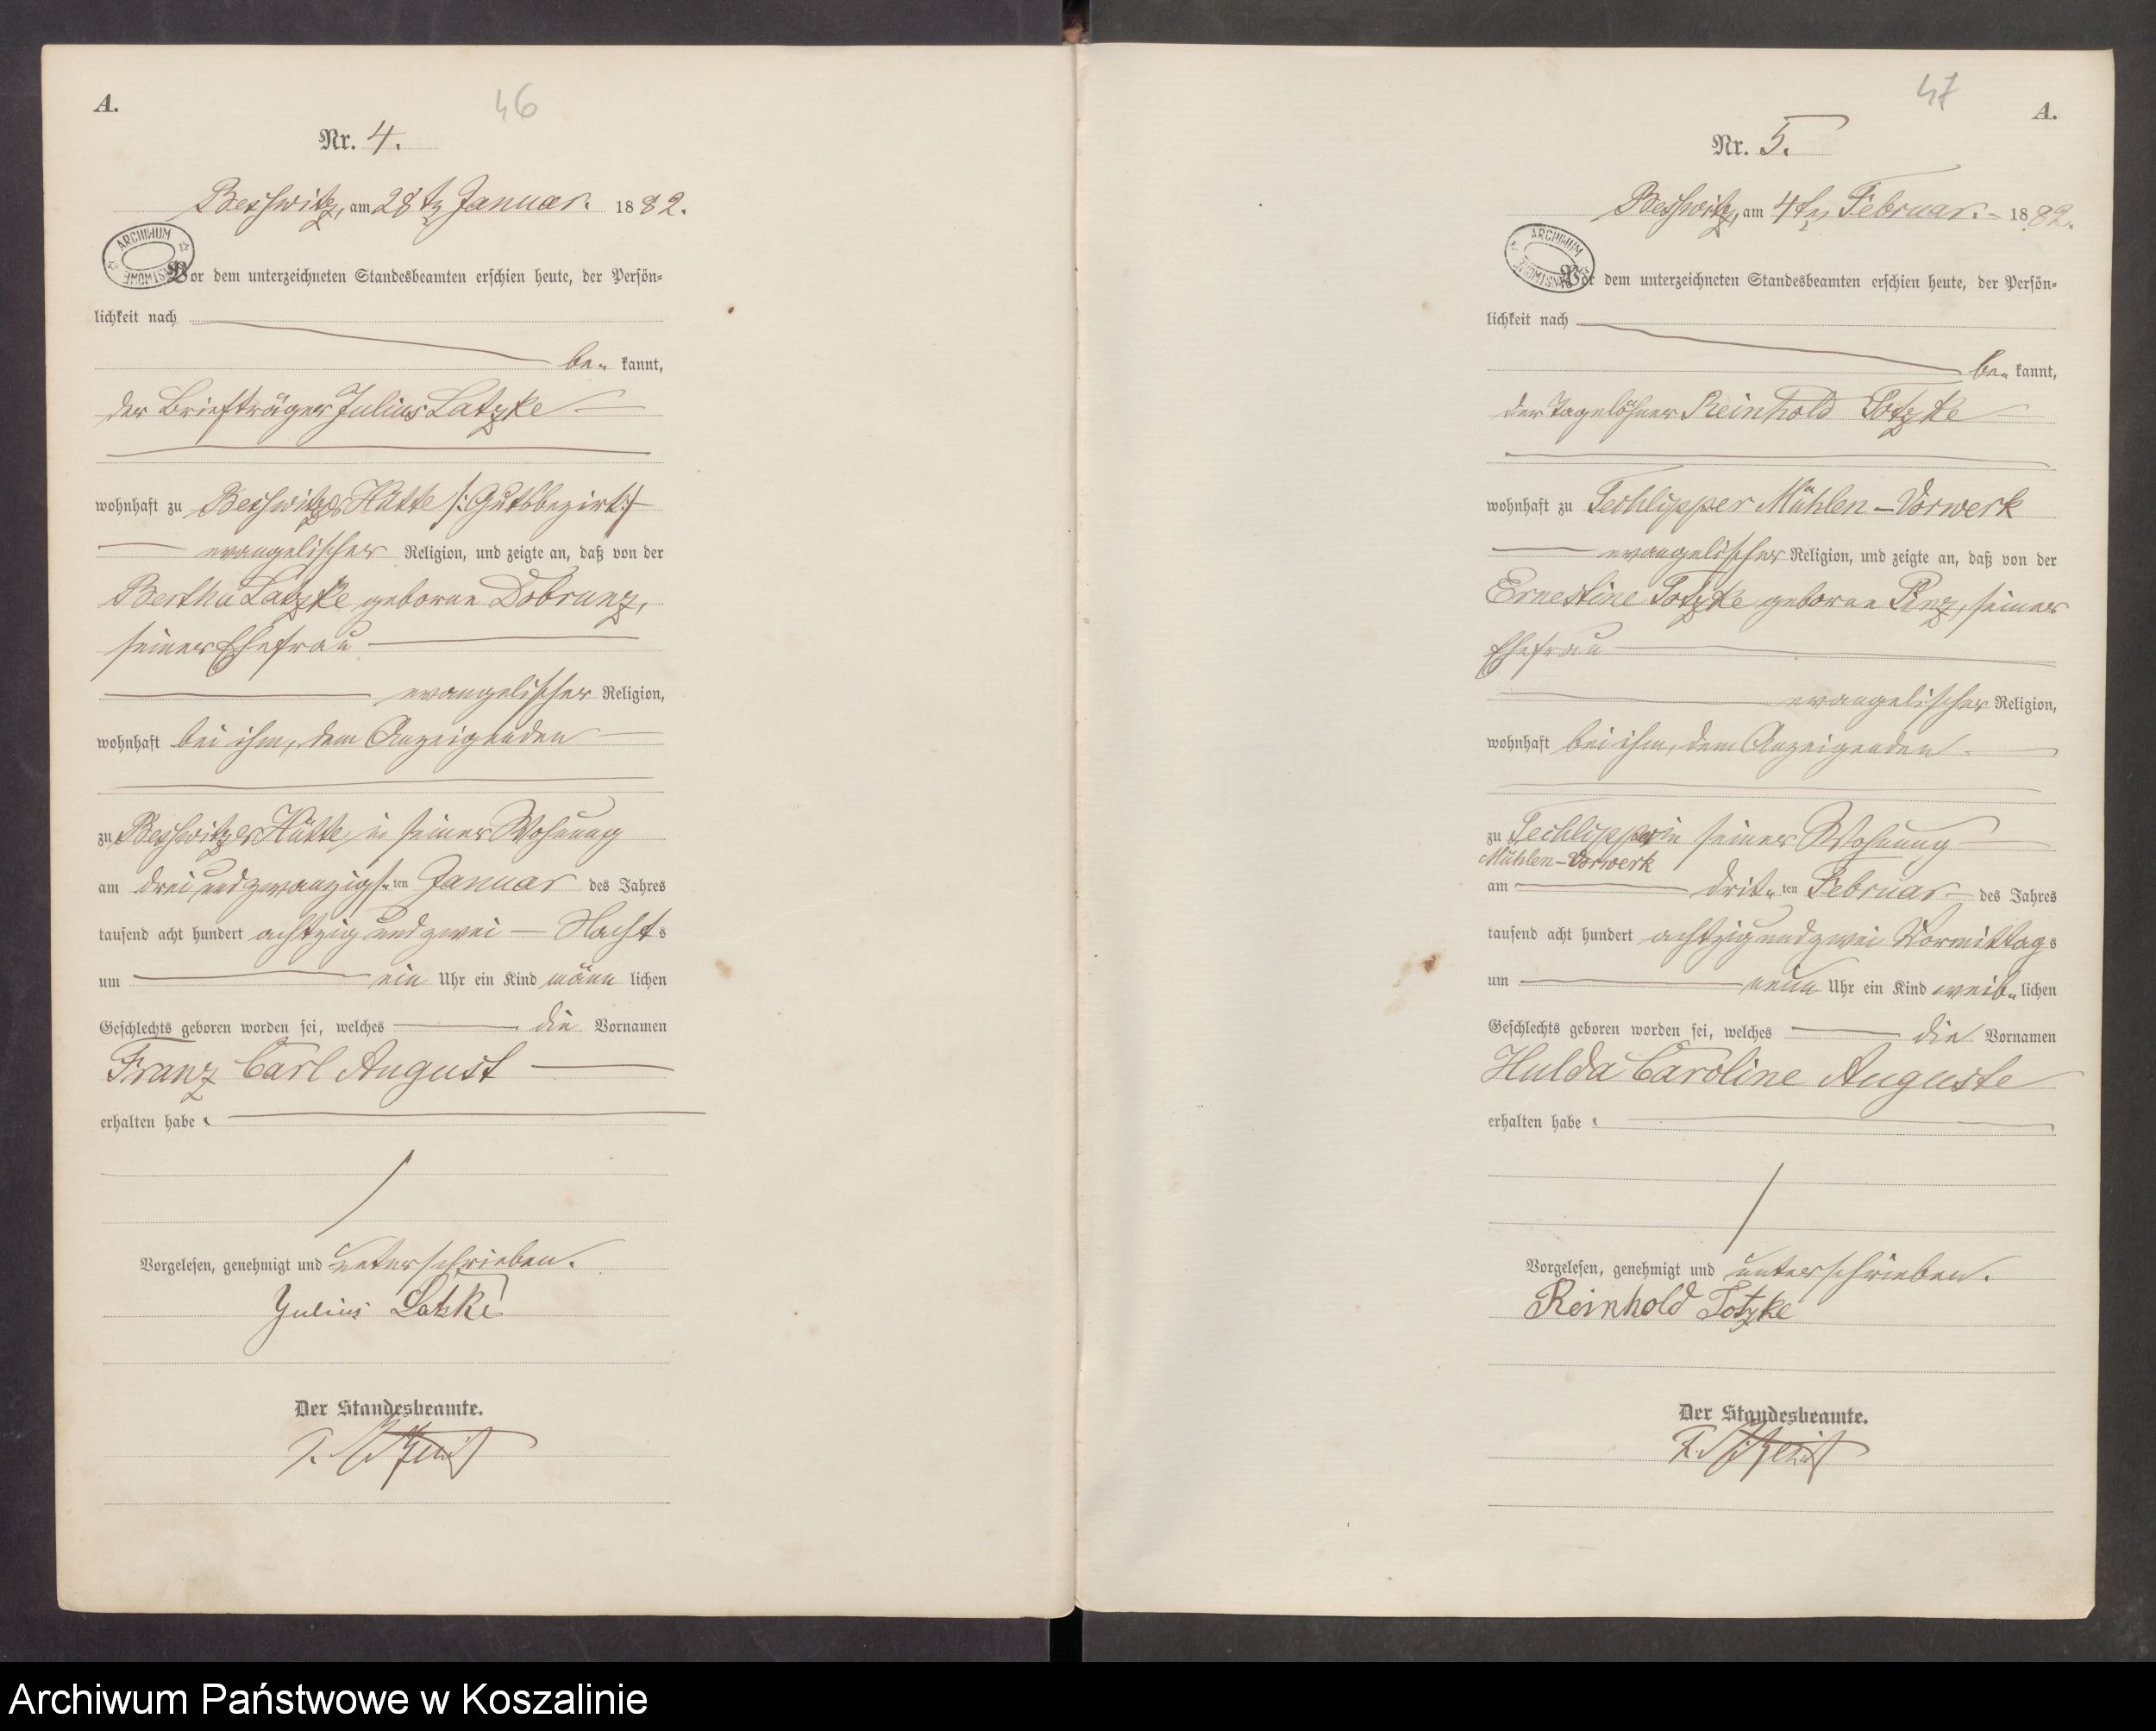 A.
46
Nr. 4.
Besswitz, am 28 ts Januar. 1882.
ARCHIWUM
Vor dem unterzeichneten Standesbeamten erschien heute, der Persön-
lichkeit nach
be- kannt,
der Briefträger Julius Latzke
wohnhaft zu Besswitzer Hütte /:Gutsbezirk:/
evangelischer Religion, und zeigte an, daß von der
Bertha Latzke geborne Dobrunz,
seiner Ehefrau
evangelischer Religion,
wohnhaft bei ihm, dem Anzeigenden
zu Besswitzer Hütte in seiner Wohnung
am drei und zwanzigs-ten Januar des Jahres
tausend acht hundert achtzig und zwei Nachts
um ein Uhr ein Kind männ lichen
Geschlechts geboren worden sei, welches die Vornamen
Franz Carl August
erhalten habe.
Vorgelesen, genehmigt und unterschrieben.
Julius Latzke
Der Standesbeamte.
47
A.
Nr. 5.
Besswitz, am 4ts Februar. 1882.
ARCHIWUM
Vor dem unterzeichneten Standesbeamten erschien heute, der Persön-
lichkeit nach
be- kannt,
der Tagelöhner Reinhold Totzke
wohnhaft zu Techlipper Mühlen-Vorwerk
evangelischer Religion, und zeigte an, daß von der
Ernestine Totzke geborne Pinz, seiner
Ehefrau
evangelischer Religion,
wohnhaft bei ihm, dem Anzeigenden
zu Techlipper in seiner Wohnung
Mühlen-Vorwerk
am drit-ten Februar des Jahres
tausend acht hundert achtzig und zwei Vormittags
um neun Uhr ein Kind weib-lichen
Geschlechts geboren worden sei, welches die Vornamen
Hulda Caroline Auguste
erhalten habe.
Vorgelesen, genehmigt und unterschrieben.
Reinhold Totzke
Der Standesbeamte.
Archiwum Państwowe w Koszalinie